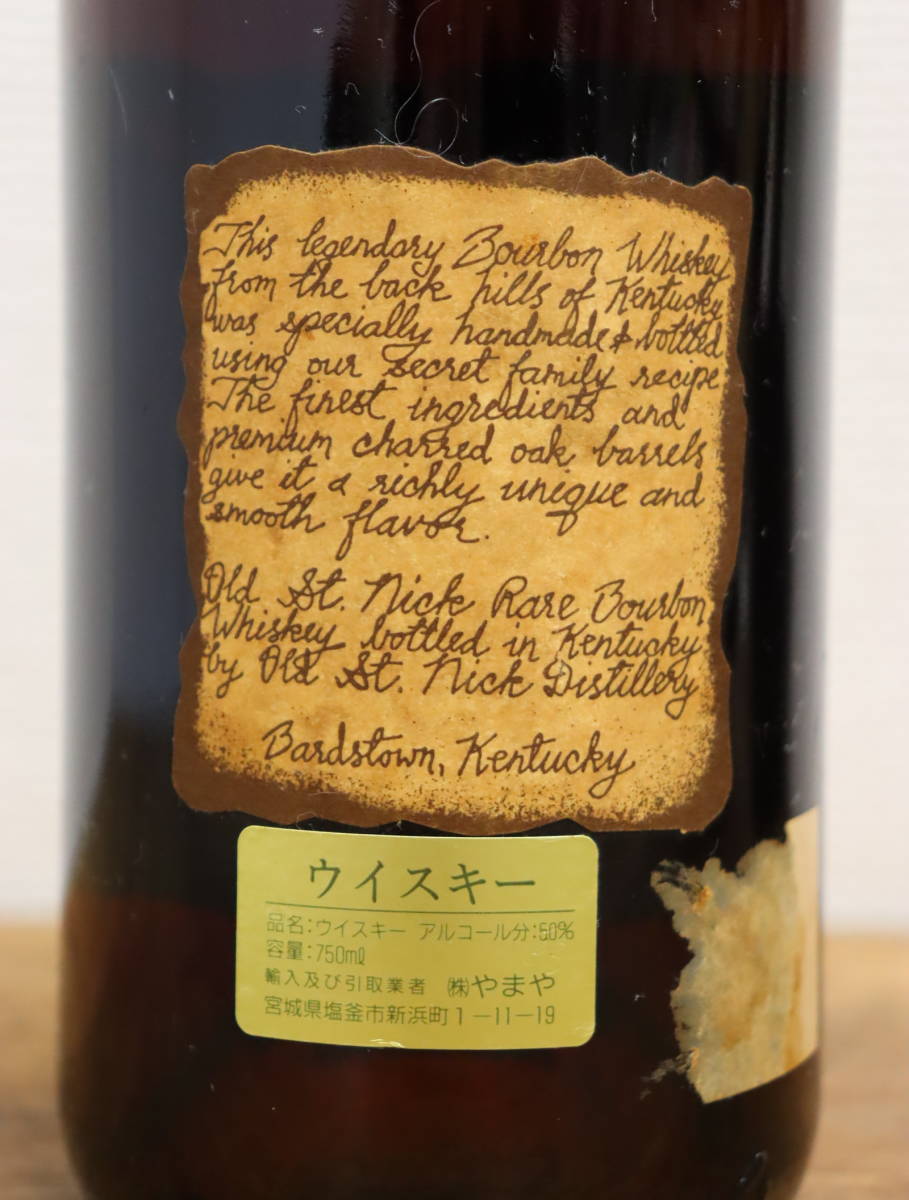 This legendary Bourbon Whiskey
from the back hills of Kentucky
was specially handmade & bottled
using our secret family recipe
The finest ingredients and
premium charred oak barrels
give it a richly unique and
smooth flavor.
Old St. Nick Rare Bourbon
Whiskey bottled in Kentucky
by Old St. Nick Distillery
Bardstown, Kentucky
ウイスキー
品名:ウイスキー アルコール分:50%
容量:750ml
輸入及び引取業者 ㈱やまや
宮城県塩釜市新浜町1-11-19